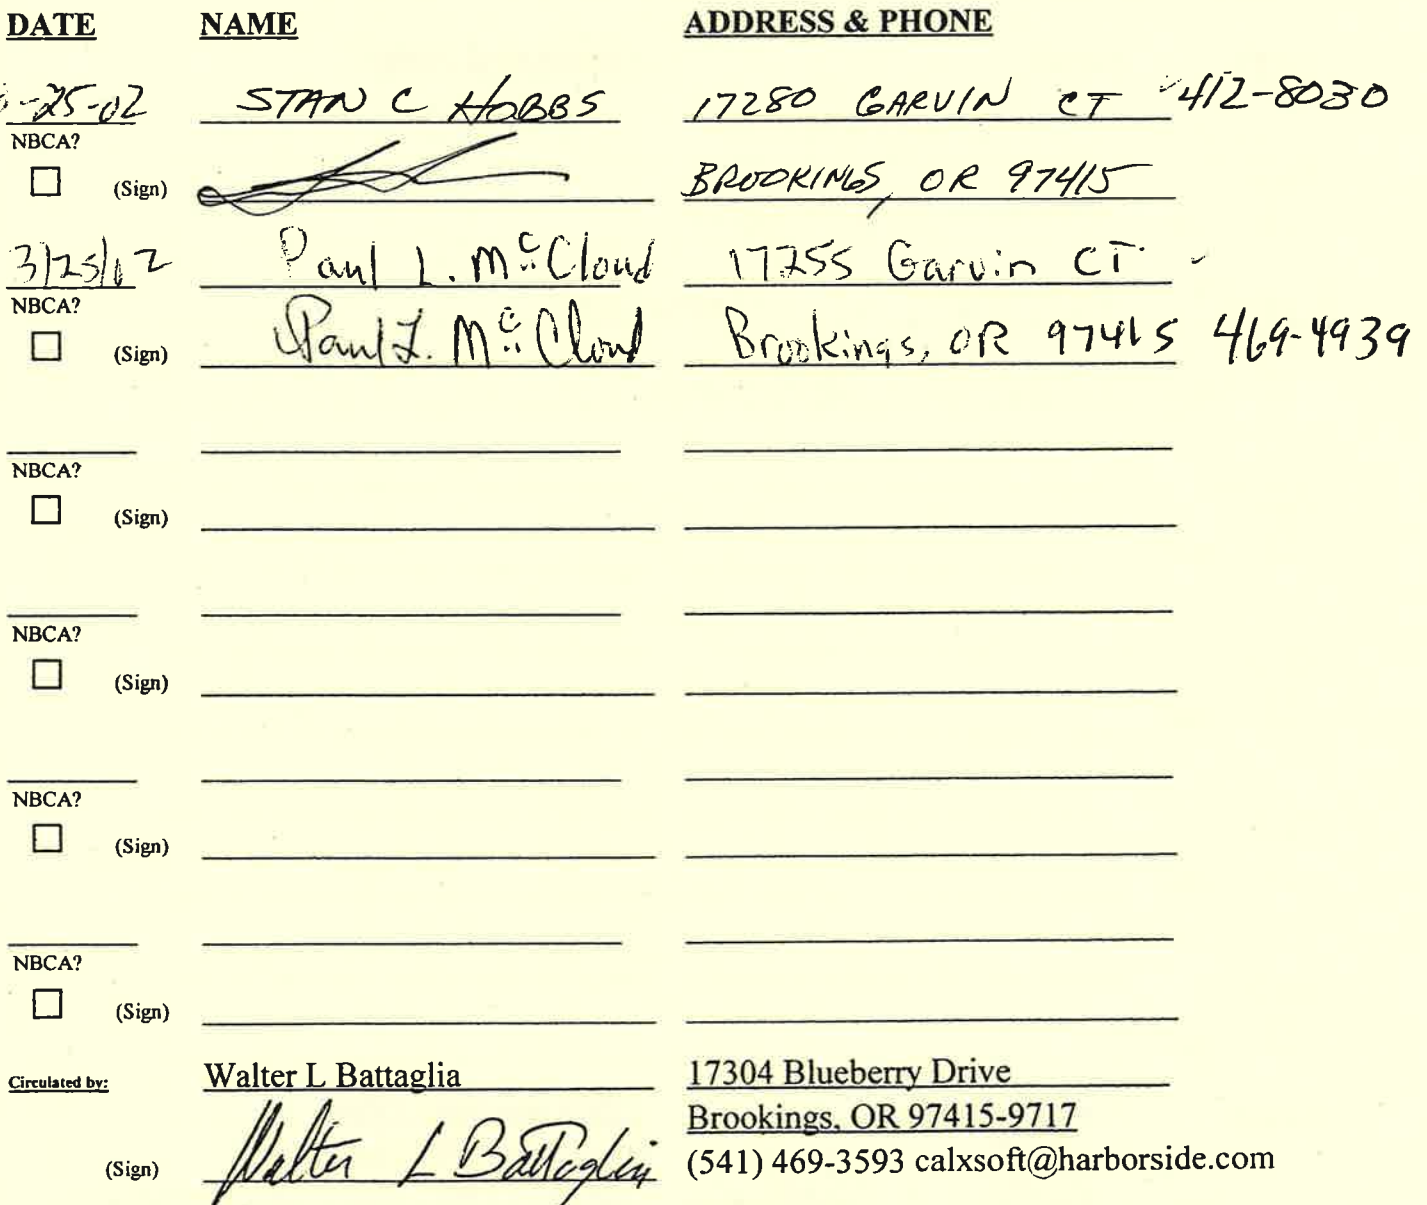 DATE NAME ADDRESS & PHONE
-25-02 STAN C HOBBS 17280 GARVIN CT 412-8030
NBCA?
(Sign) BROOKINGS, OR 97415
3/25/02 Paul L. McCloud 17255 Garvin CT
NBCA?
(Sign) Paul L. McCloud Brookings, OR 97415 469-4939
NBCA?
(Sign)
NBCA?
(Sign)
NBCA?
(Sign)
NBCA?
(Sign)
Circulated by: Walter L Battaglia 17304 Blueberry Drive
Brookings, OR 97415-9717
(Sign) Walter L Battaglia (541) 469-3593 calxsoft@harborside.com